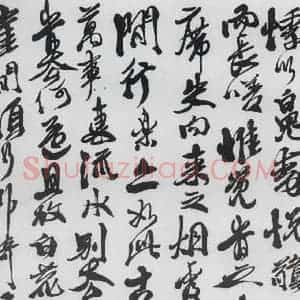 悸以魄動怳驚
而長嗟惟覺時之
席失向來之烟霞
間行樂亦如此古
萬事東流水別君
去兮何時還且放白鹿
崖間須行即騎
Shufaziliao.COM